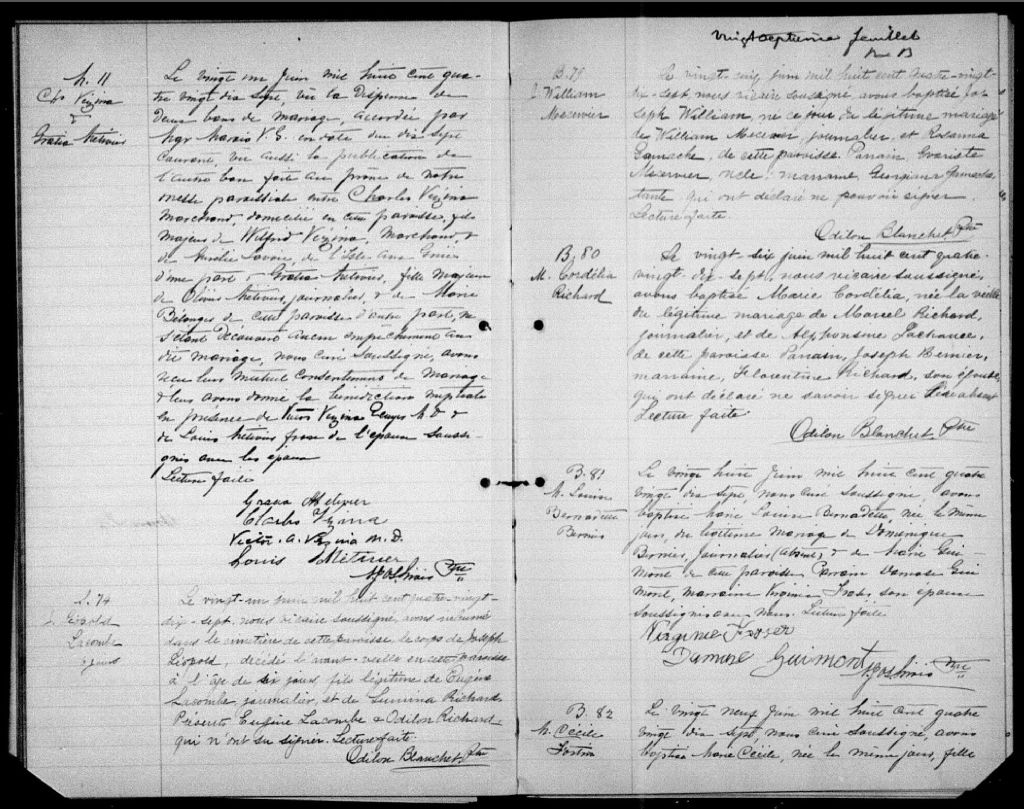 M. 11
Chs Vézina
&
Gratia Métivier
Le vingt un Juin mil huit cent qua-
tre vingt dix sept, vu la dispense de
deux bans de mariage, accordée par
Mgr Marois V.G. en date du dix sept
Courant, vu aussi la publication de
l'autre ban faite au prône de notre
messe paroissiale entre Charles Vézina
Marchand, domicilié en cette paroisse, fils
majeur de Wilfrid Vézina, Marchand, &
de Aurélie Lavoie, de l'Isle aux Grues
d'une part & Gratia Métivier, fille majeure
de Olivier Métivier, journalier, & de Marie
Bélanger de cette paroisse d'autre part, ne
s'étant découvert aucun empêchement au
dit mariage, nous curé soussigné, avons
reçu leur mutuel consentement de mariage
& leur avons donné la bénédiction nuptiale
en présence de Victor Vézina Ecuyer M.D. &
de Louis Métivier frère de l'épouse soussi-
gnés avec les époux
Lecture faite
Gratia Métivier
Charles Vézina
Victor. A. Vézina M.D.
Louis Métivier
Ptre
S. 74
J. Léopold
Lacombe
6 jours
Le vingt-un juin mil huit cent quatre-vingt-
dix-sept, nous vicaire soussigné, avons inhumé
dans le cimetière de cette paroisse, le corps de Joseph
Léopold, décédé l'avant-veille en cette paroisse
à l'âge de six jours, fils légitime de Eugène
Lacombe, journalier, et de Lumina Richard
Présents Eugène Lacombe & Odilon Richard
qui n'ont su signer. Lecture faite.
Odilon Blanchet Ptre
Vingt septième feuillet
B. 79
J. William
Mecervier
Le vingt-cinq juin mil huit cent quatre-vingt-
dix-sept, nous vicaire soussigné, avons baptisé Jo-
seph William, né ce jour du légitime mariage
de William Mecervier, journalier, et Rosanna
Gamache, de cette paroisse. Parrain, Evariste
Mecervier, oncle, marraine, Georgiana Gamache
tante qui ont déclaré ne pouvoir signer.
Lecture faite
Odilon Blanchet Ptre
B. 80
M. Cordélia
Richard
Le vingt-six juin mil huit cent quatre-
vingt-dix-sept, nous vicaire soussigné,
avons baptisé Marie Cordélia, née la veille
du légitime mariage de Marcel Richard,
journalier, et de Alphonsine Lachance,
de cette paroisse Parrain, Joseph Bernier,
marraine, Florentine Richard, son épouse,
qui ont déclaré ne savoir signer Père absent
Lecture faite
Odilon Blanchet Ptre
B. 81
M. Louise
Bernadette
Bernier
Le vingt huit Juin mil huit cent quatre
vingt dix sept, nous curé soussigné, avons
baptisé Marie Louise Bernadette, née le même
jour, du légitime mariage de Dominique
Bernier, Journalier (absent) & de Marie Gui-
mont de cette paroisse Parrain Damase Gui
mont, marraine Virginie Fraser, son épouse
soussignés avec nous. Lecture faite
Virginie Fraser
Damase Guimont
Ptre
B. 82
M. Cécile
Fortin
Le vingt neuf Juin mil huit cent quatre
vingt dix sept nous curé soussigné, avons
baptisé Marie Cécile, née le même jour, fille